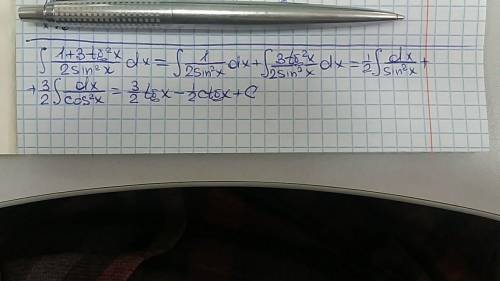 ∫ (1+3tg²x)/(2sin²x) dx = ∫ 1/(2sin²x) dx + ∫ (3tg²x)/(2sin²x) dx = 1/2 ∫ dx/sin²x +
+ 3/2 ∫ dx/cos²x = 3/2 tgx − 1/2 ctgx + C